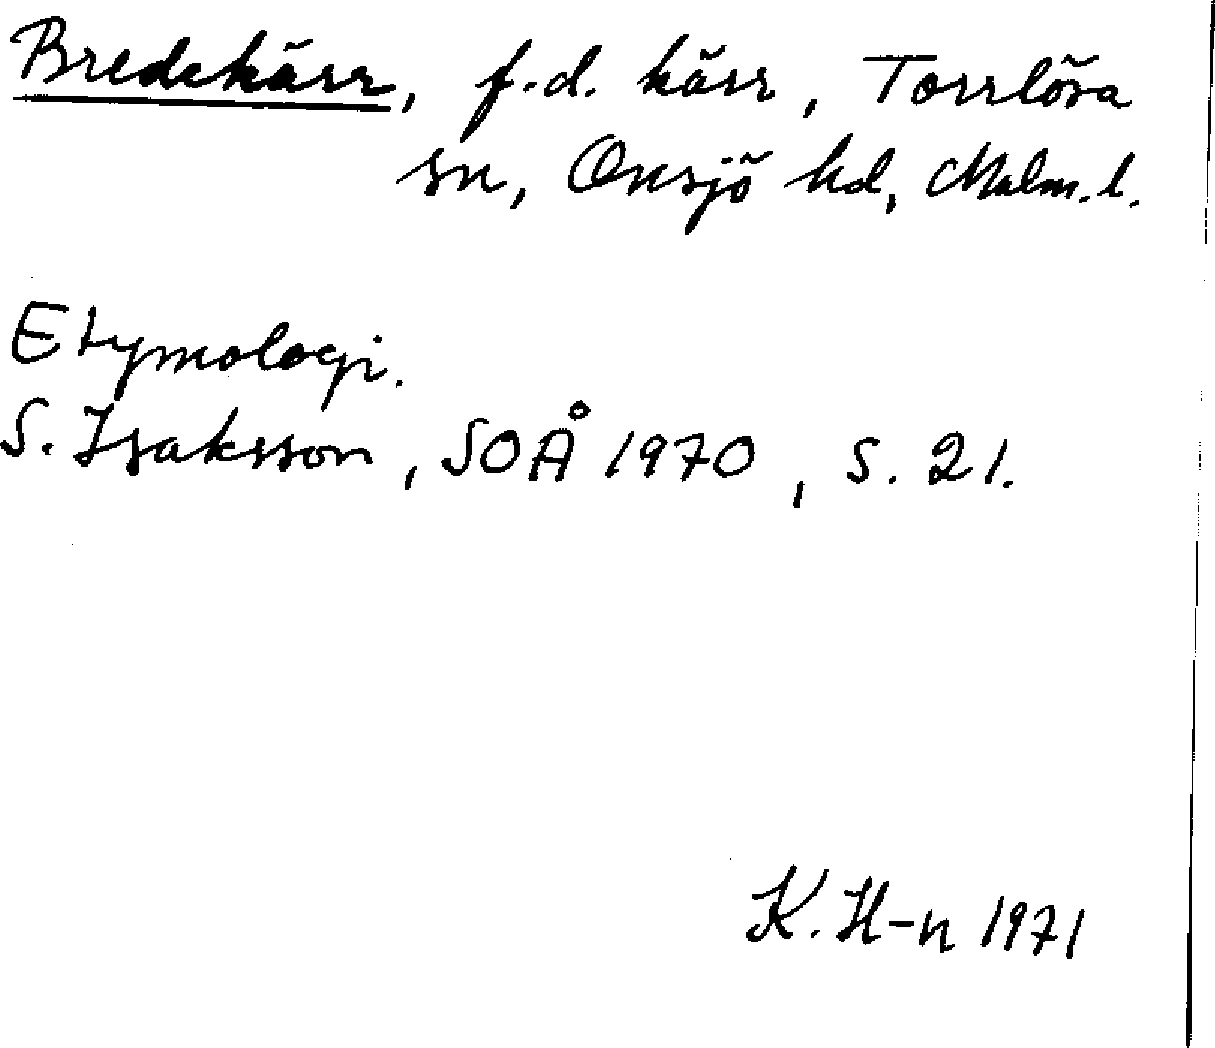 Bredekärr, f.d. kärr, Torrlösa
sn, Onsjö hd, Malm. l.
Etymologi.
S. Isaksson, SOÅ 1970, s. 21.
K. H-n 1971